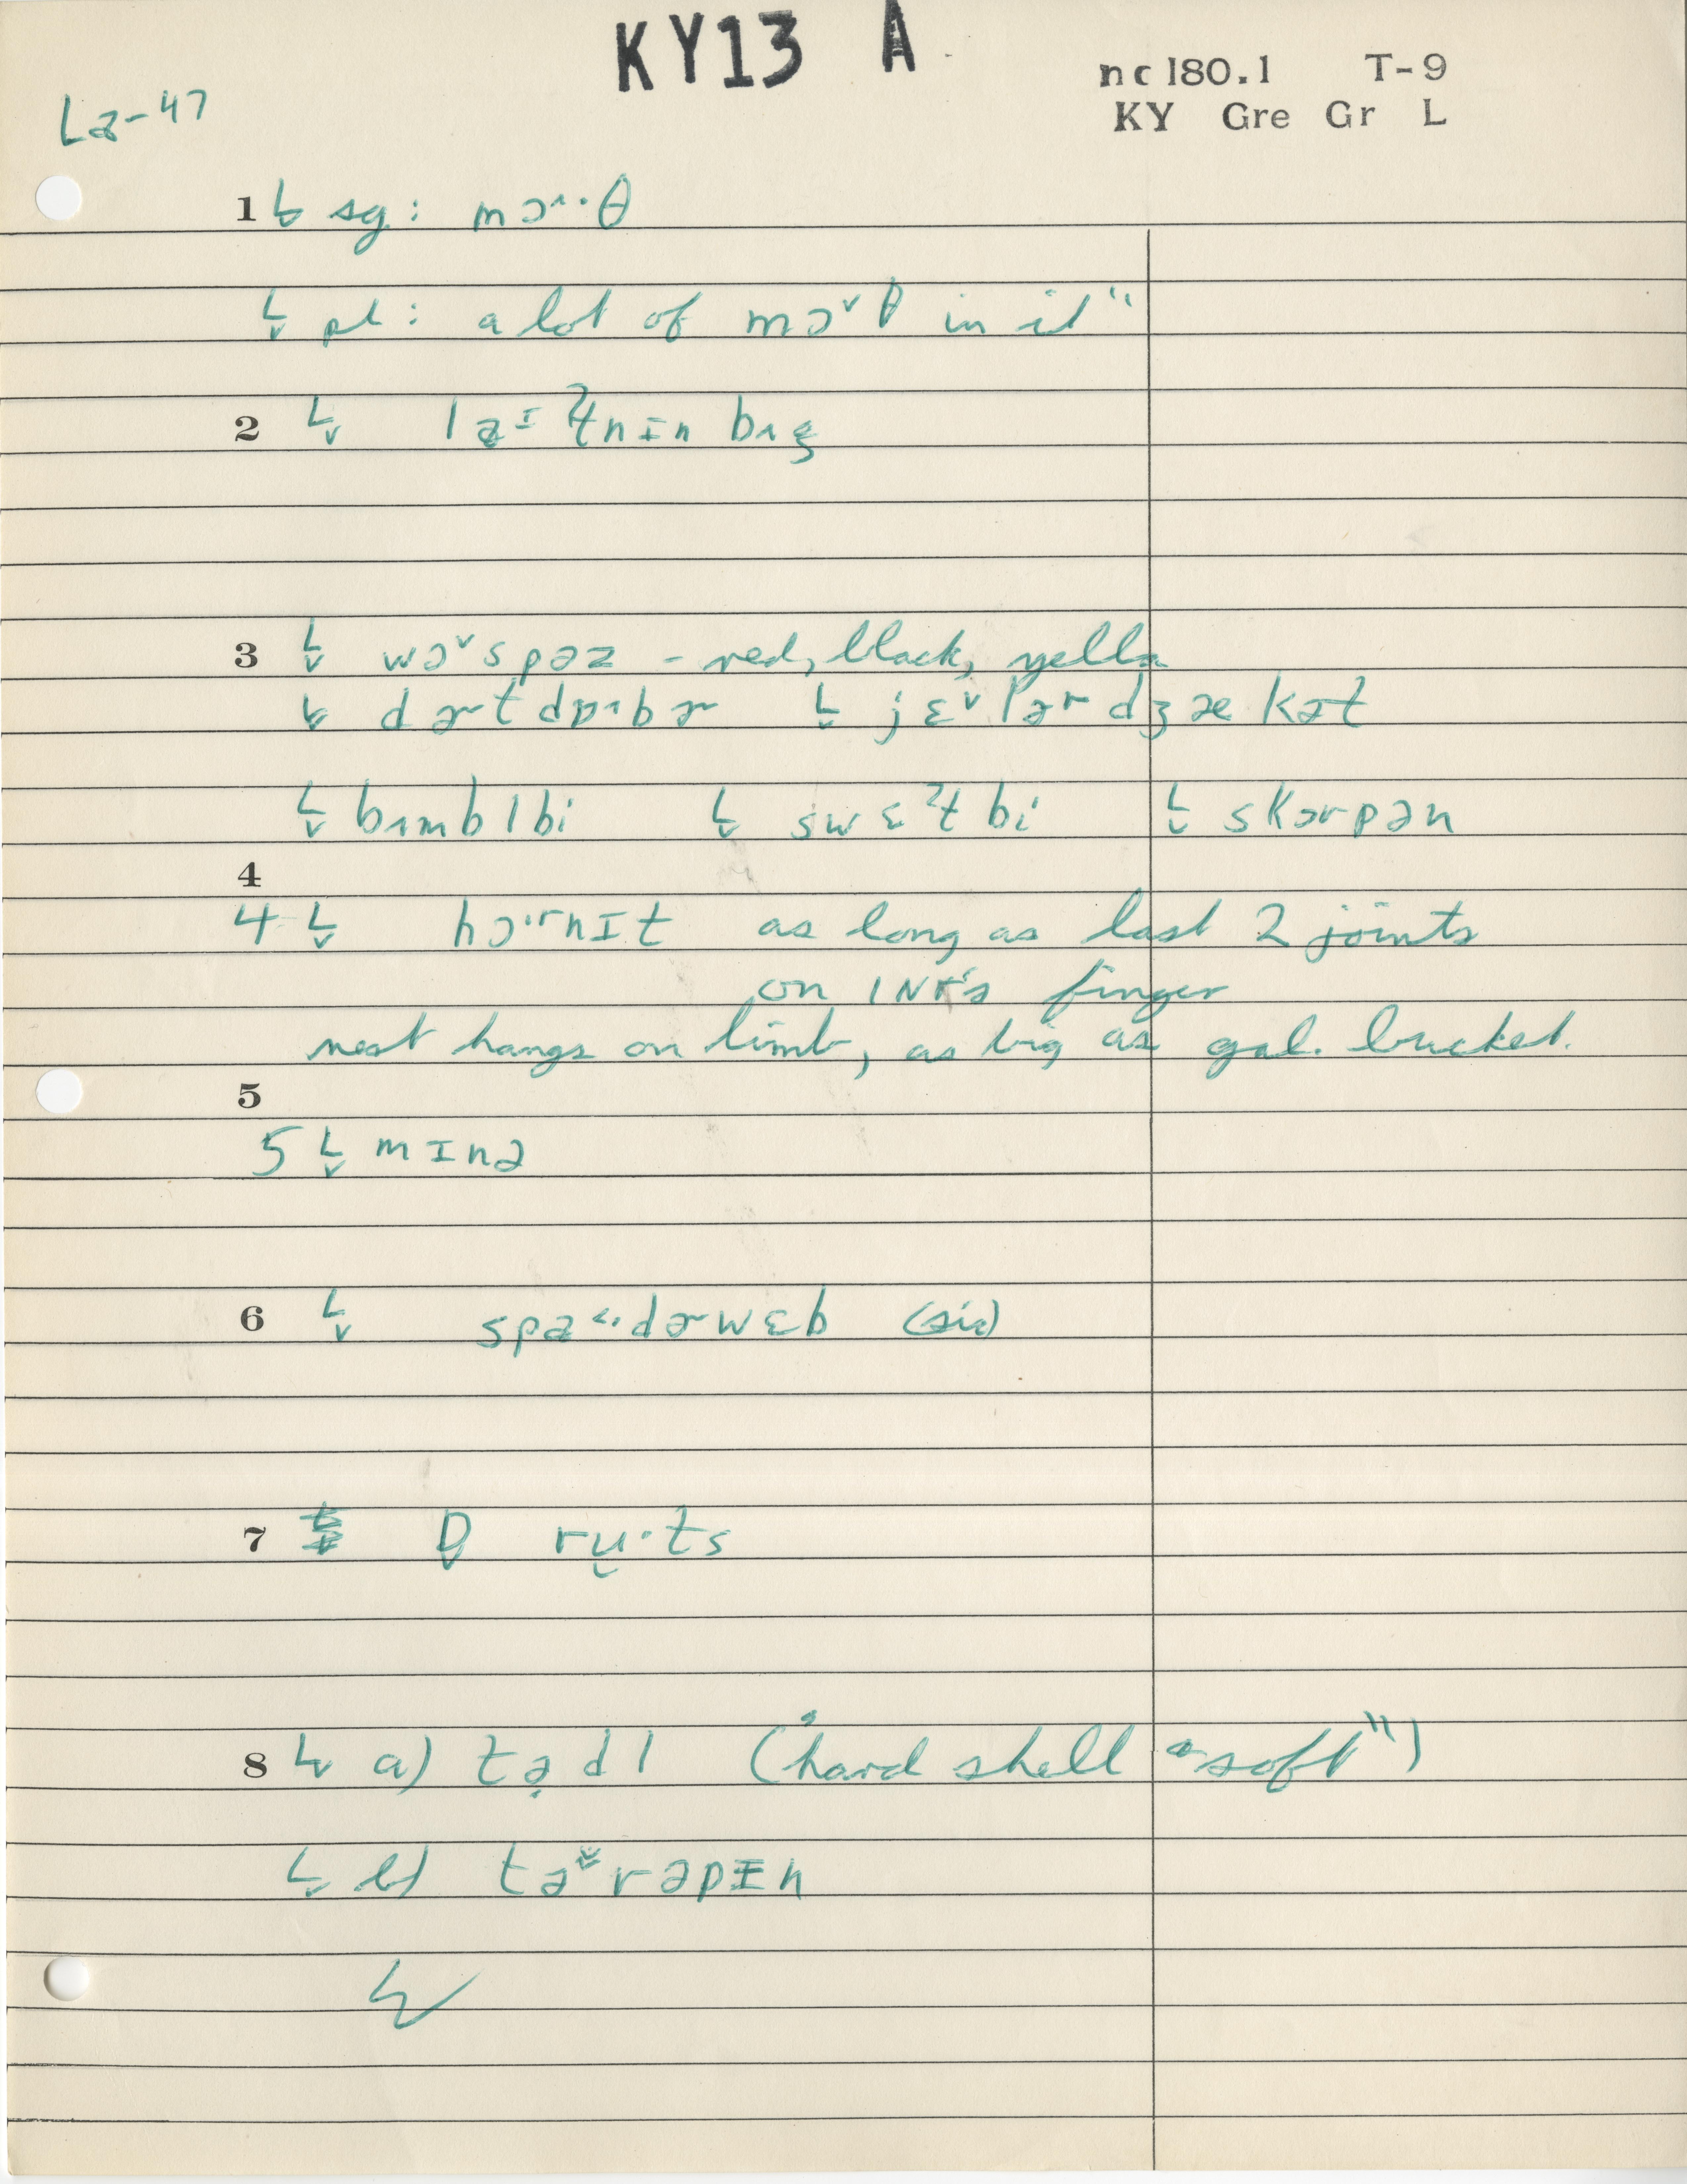 KY13 A
nc180.1 T-9
KY Gre Gr L
La-47
1 sg: mɔ˞·θ
pl: a lot of mɔ˅θ in it"
2 la=ɪˀtnɪn bʌg
3 wɔ˅spəz - red, black, yella
dɚtdɒʊbɚ jɛ˅lɚdʒækət
bʌmblbi swɛˀtbi skɔrpən
4
4 hɔ·rnɪt as long as last 2 joints
on INF's finger
nest hangs on limb, as big as gal. bucket.
5
5 mɪnə
6 spa·dɚwɛb (sic)
7 D rʉ·ts
8 a) tədl ("hard shell "soft")
b) tərəpɪn